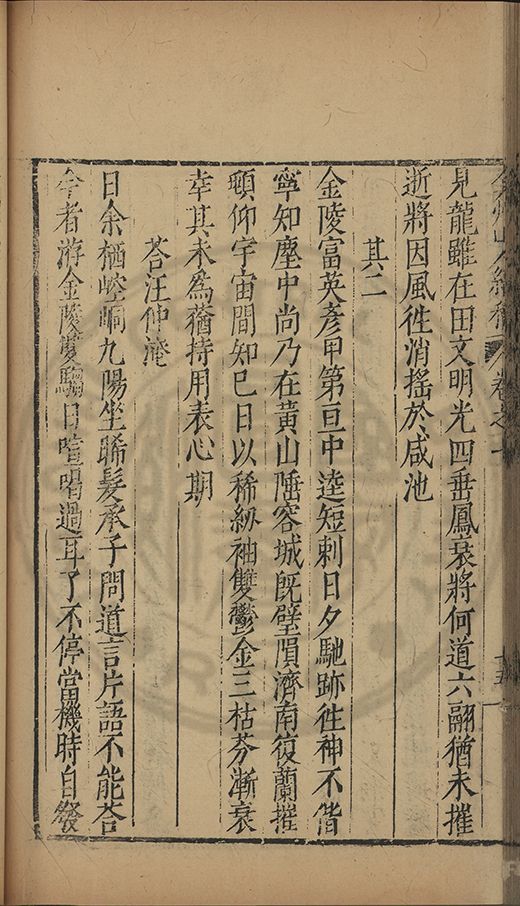 卷之十
十五
見龍雖在田文明光四垂鳳衰將何道六翮猶未摧
逝將因風徃消搖於咸池
其二
金陵富英彦甲第亘中逵短刺日夕馳跡徃神不偕
寧知塵中尚乃在黃山陲容城旣璧隕濟南復蘭摧
頫仰宇宙間知巳日以稀紉袖雙鬱金三枯芬漸衰
幸其未為蕕持用表心期
荅汪仲淹
日余栖崆峒九陽坐晞髮承子問道言片語不能荅
今者游金陵雙驄日喧喝過耳了不停當機時自發